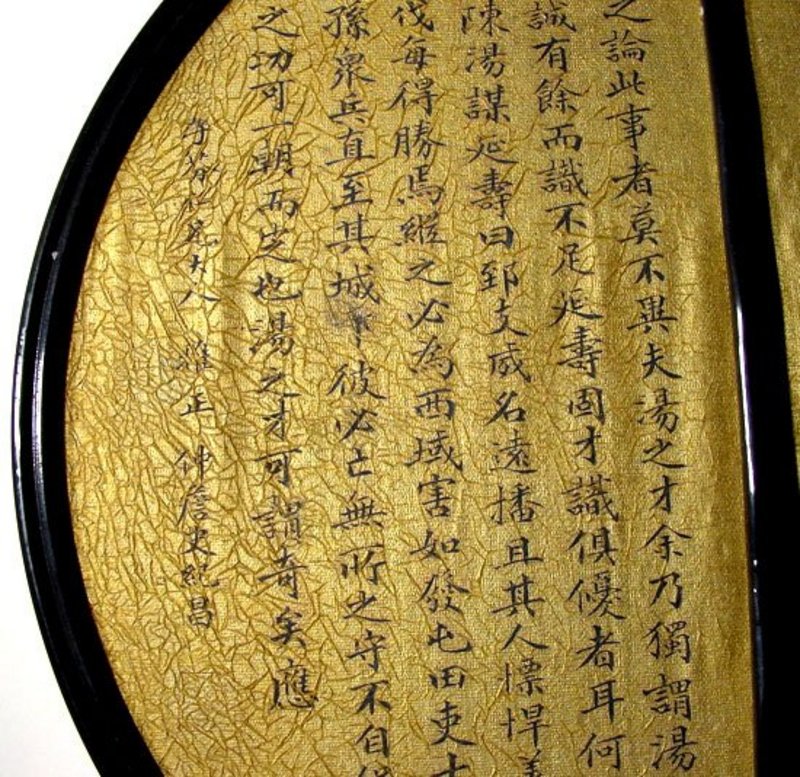 之論此事者莫不異夫湯之才余乃獨謂湯
誠有餘而識不足延壽固才識俱優者耳何
陳湯謀延壽曰郅支威名遠播且其人慓悍善
伐每得勝焉縱之必為西域害如發屯田吏士
孫衆兵直至其城下彼必亡無所之守不自保
之功可一朝而定也湯之才可謂奇矣應
仁兄大人 雅正 仲詹史紀昌